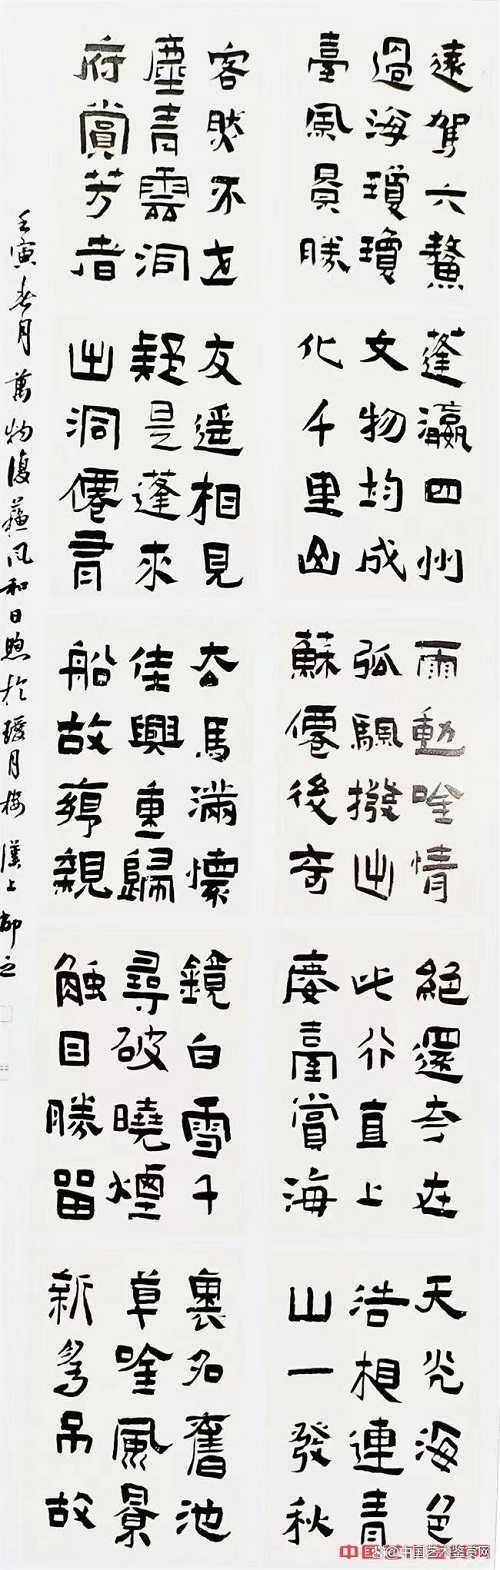 遠駕六鰲
過海瓊瓊
臺風景勝
蓬瀛四州
文物均成
化千里山
雨動唫情
弧騩撥出
蘇僊後奇
絕還夸在
此行直上
慶臺賞海
天光海色
浩相連青
山一發秋
客然不世
塵青雲洞
府賞芳者
友遥相見
疑是蓬來
出洞僊
馬滿懷
佳興重歸
船故鄉親
鏡白雪千
尋破曉煙
觸目勝留
裏名舊池
草唫風景
新為吊故
壬寅春月萬物復蘇風和日煦於月樓漢上邵
中国艺术鉴赏网